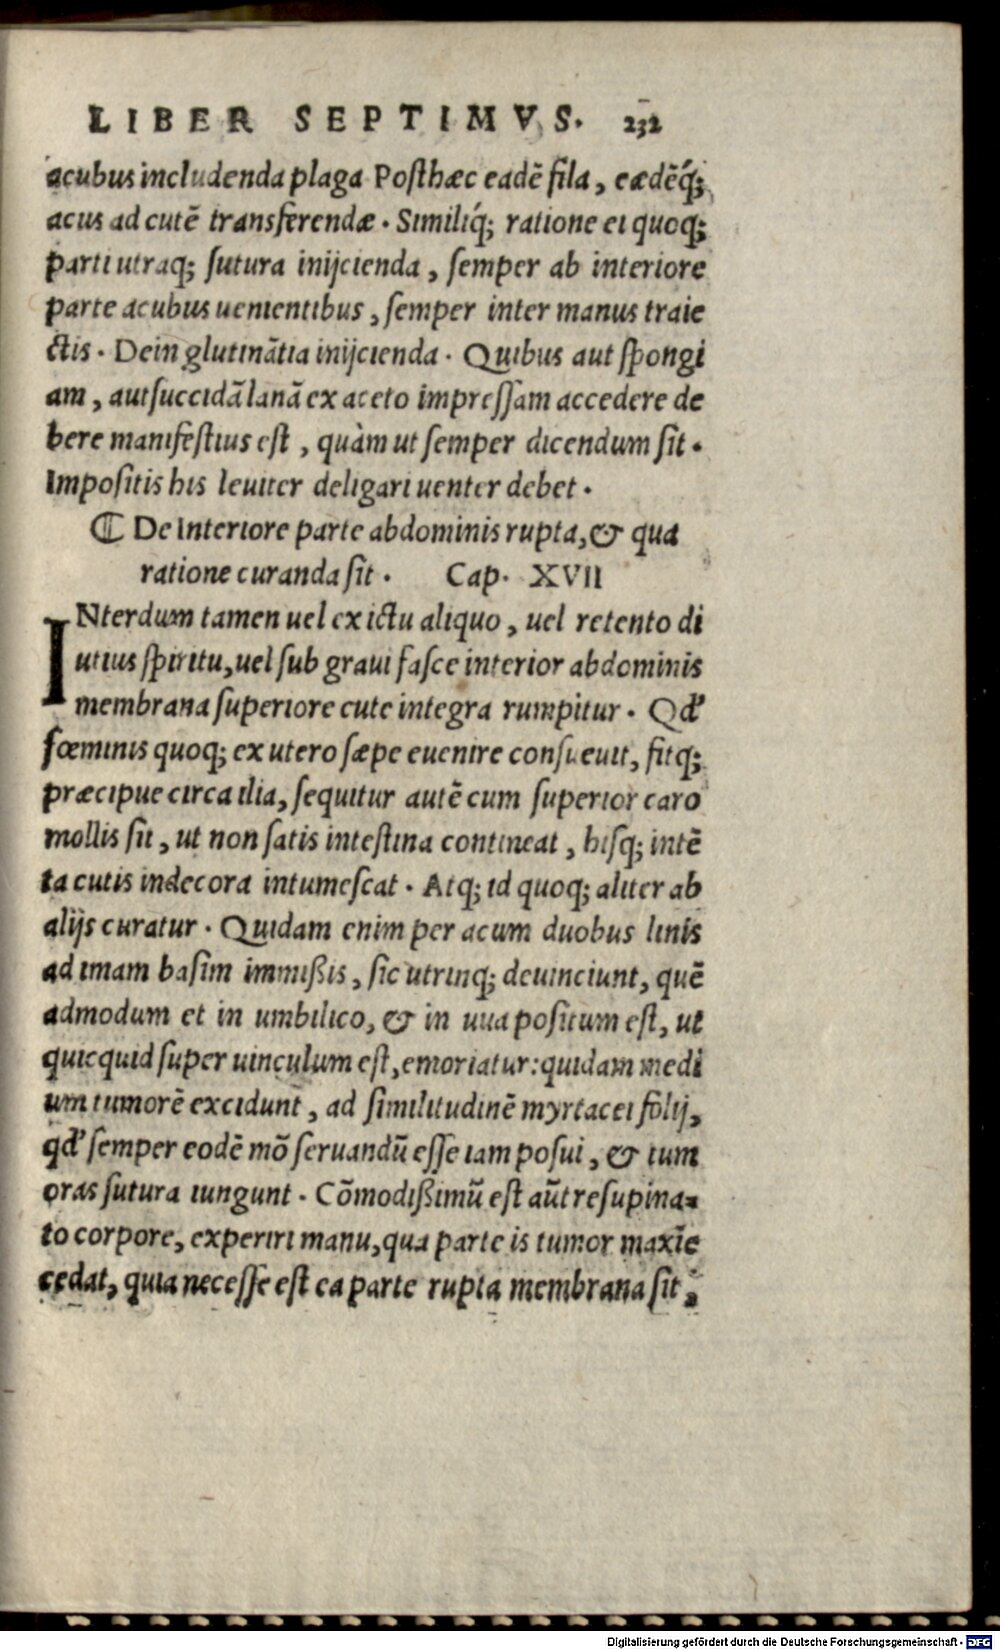 LIBER SEPTIMVS. 232
acubus includenda plaga Posthæc eadẽ fila, eædẽq́;
acus ad cutẽ transferendæ. Similiq́; ratione ei quoq;
parti utraq; sutura inijcienda, semper ab interiore
parte acubus uenientibus, semper inter manus traie
ctis. Dein glutinãtia inijcienda. Quibus aut spongi
am, aut succidã lanã ex aceto impressam accedere de
bere manifestius est, quàm ut semper dicendum sit.
Impositis his leuiter deligari uenter debet.
⁋ De Interiore parte abdominis rupta, & qua
ratione curanda sit. Cap. XVII
INterdum tamen uel ex ictu aliquo, uel retento di
utius spiritu, uel sub graui fasce interior abdominis
membrana superiore cute integra rumpitur. Qd'
fœminis quoq; ex utero sæpe euenire consueuit, fitq;
præcipue circa ilia, sequitur autẽ cum superior caro
mollis sit, ut non satis intestina contineat, hisq; intẽ
ta cutis indecora intumescat. Atq; id quoq; aliter ab
alijs curatur. Quidam enim per acum duobus linis
ad imam basim immißis, sic utrinq; deuinciunt, quẽ
admodum et in umbilico, & in uua positum est, ut
quicquid super uinculum est, emoriatur: quidam medi
um tumorẽ excidunt, ad similitudinẽ myrtacei folij,
qd' semper eodẽ mõ seruandũ esse iam posui, & tum
oras sutura iungunt. Cõmodißimũ est aũt resupina-
to corpore, experiri manu, qua parte is tumor maxĩe
cedat, quia necesse est ea parte rupta membrana sit,
Digitalisierung gefördert durch die Deutsche Forschungsgemeinschaft - DFG